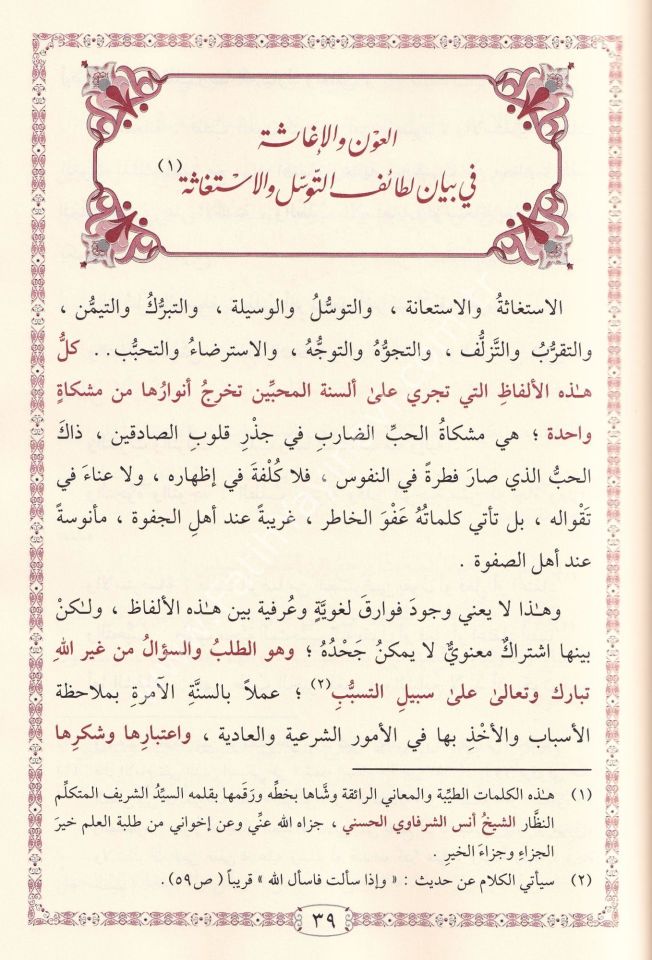 العون والإغاثة
في بيان لطائف التوسل والاستغاثة (١)
الاستغاثةُ والاستعانة ، والتوسُّلُ والوسيلة ، والتبرُّكُ والتيمُّن ،
والتقرُّبُ والتَّزلُّف ، والتجوُّهُ والتوجُّه ، والاسترضاءُ والتحبُّب . . كلُّ
هـٰذه الألفاظِ التي تجري علىٰ ألسنة المحبِّين تخرجُ أنوارُها من مشكاةٍ
واحدة ؛ هي مشكاةُ الحبِّ الضاربِ في جذْرِ قلوبِ الصادقين ، ذاكَ
الحبُّ الذي صارَ فطرةً في النفوس ، فلا كُلْفةَ في إظهاره ، ولا عناءَ في
تَقْواله ، بل تأتي كلماتُهُ عَفْوَ الخاطر ، غريبةً عند أهلِ الجفوة ، مأنوسةً
عند أهل الصفوة .
وهـٰذا لا يعني وجودَ فوارقَ لغويَّةٍ وعُرفية بين هـٰذه الألفاظ ، ولـٰكنْ
بينها اشتراكٌ معنويٌّ لا يمكنُ جَحْدُهُ ؛ وهو الطلبُ والسؤالُ من غير اللهِ
تبارك وتعالىٰ علىٰ سبيلِ التسبُّبِ (٢) ؛ عملاً بالسنَّةِ الآمرةِ بملاحظة
الأسباب والأخْذِ بها في الأمور الشرعية والعادية ، واعتبارِها وشكرِها
(١) هـٰذه الكلمات الطيِّبة والمعاني الرائقة وشَّاها بخطِّه ورَقَمها بقلمه السيِّدُ الشريف المتكلِّم
النظَّار الشيخُ أنس الشرفاوي الحسني ، جزاه الله عنِّي وعن إخواني من طلبة العلم خيرَ
الجزاءِ وجزاءَ الخيرِ .
(٢) سيأتي الكلام عن حديث : « وإذا سألت فاسأل الله » قريباً ( ص ٥٩ ) .
٣٩